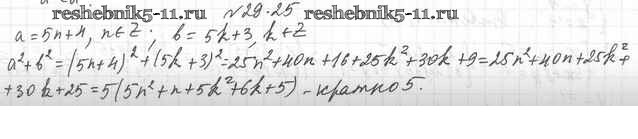 www.reshebnik5-11.ru №29.25 www.reshebnik5-11.ru
a=5n+4, n∈Z; b=5k+3, k∈Z
a²+b²=(5n+4)²+(5k+3)²=25n²+40n+16+25k²+30k+9=25n²+40n+25k²+
+30k+25=5(5n²+n+5k²+6k+5) - кратно 5.